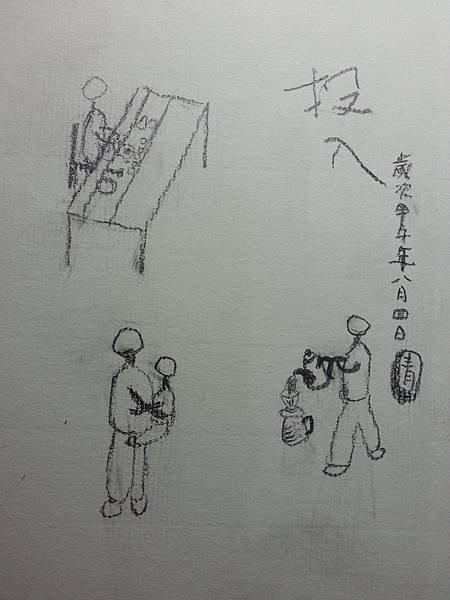 投入
歲次甲午年八月四日
清